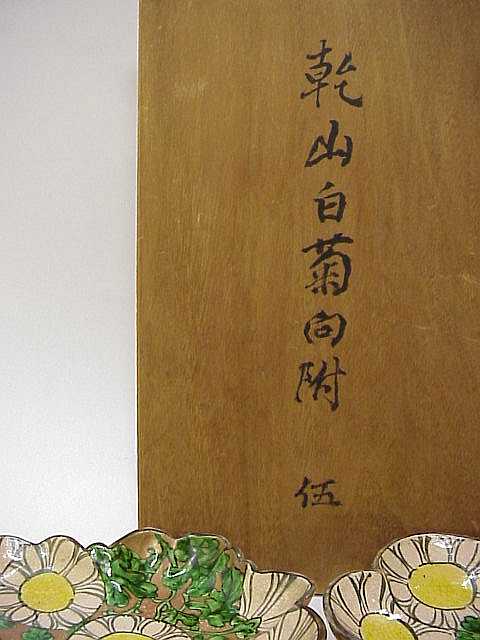 乾山白菊向附 伍